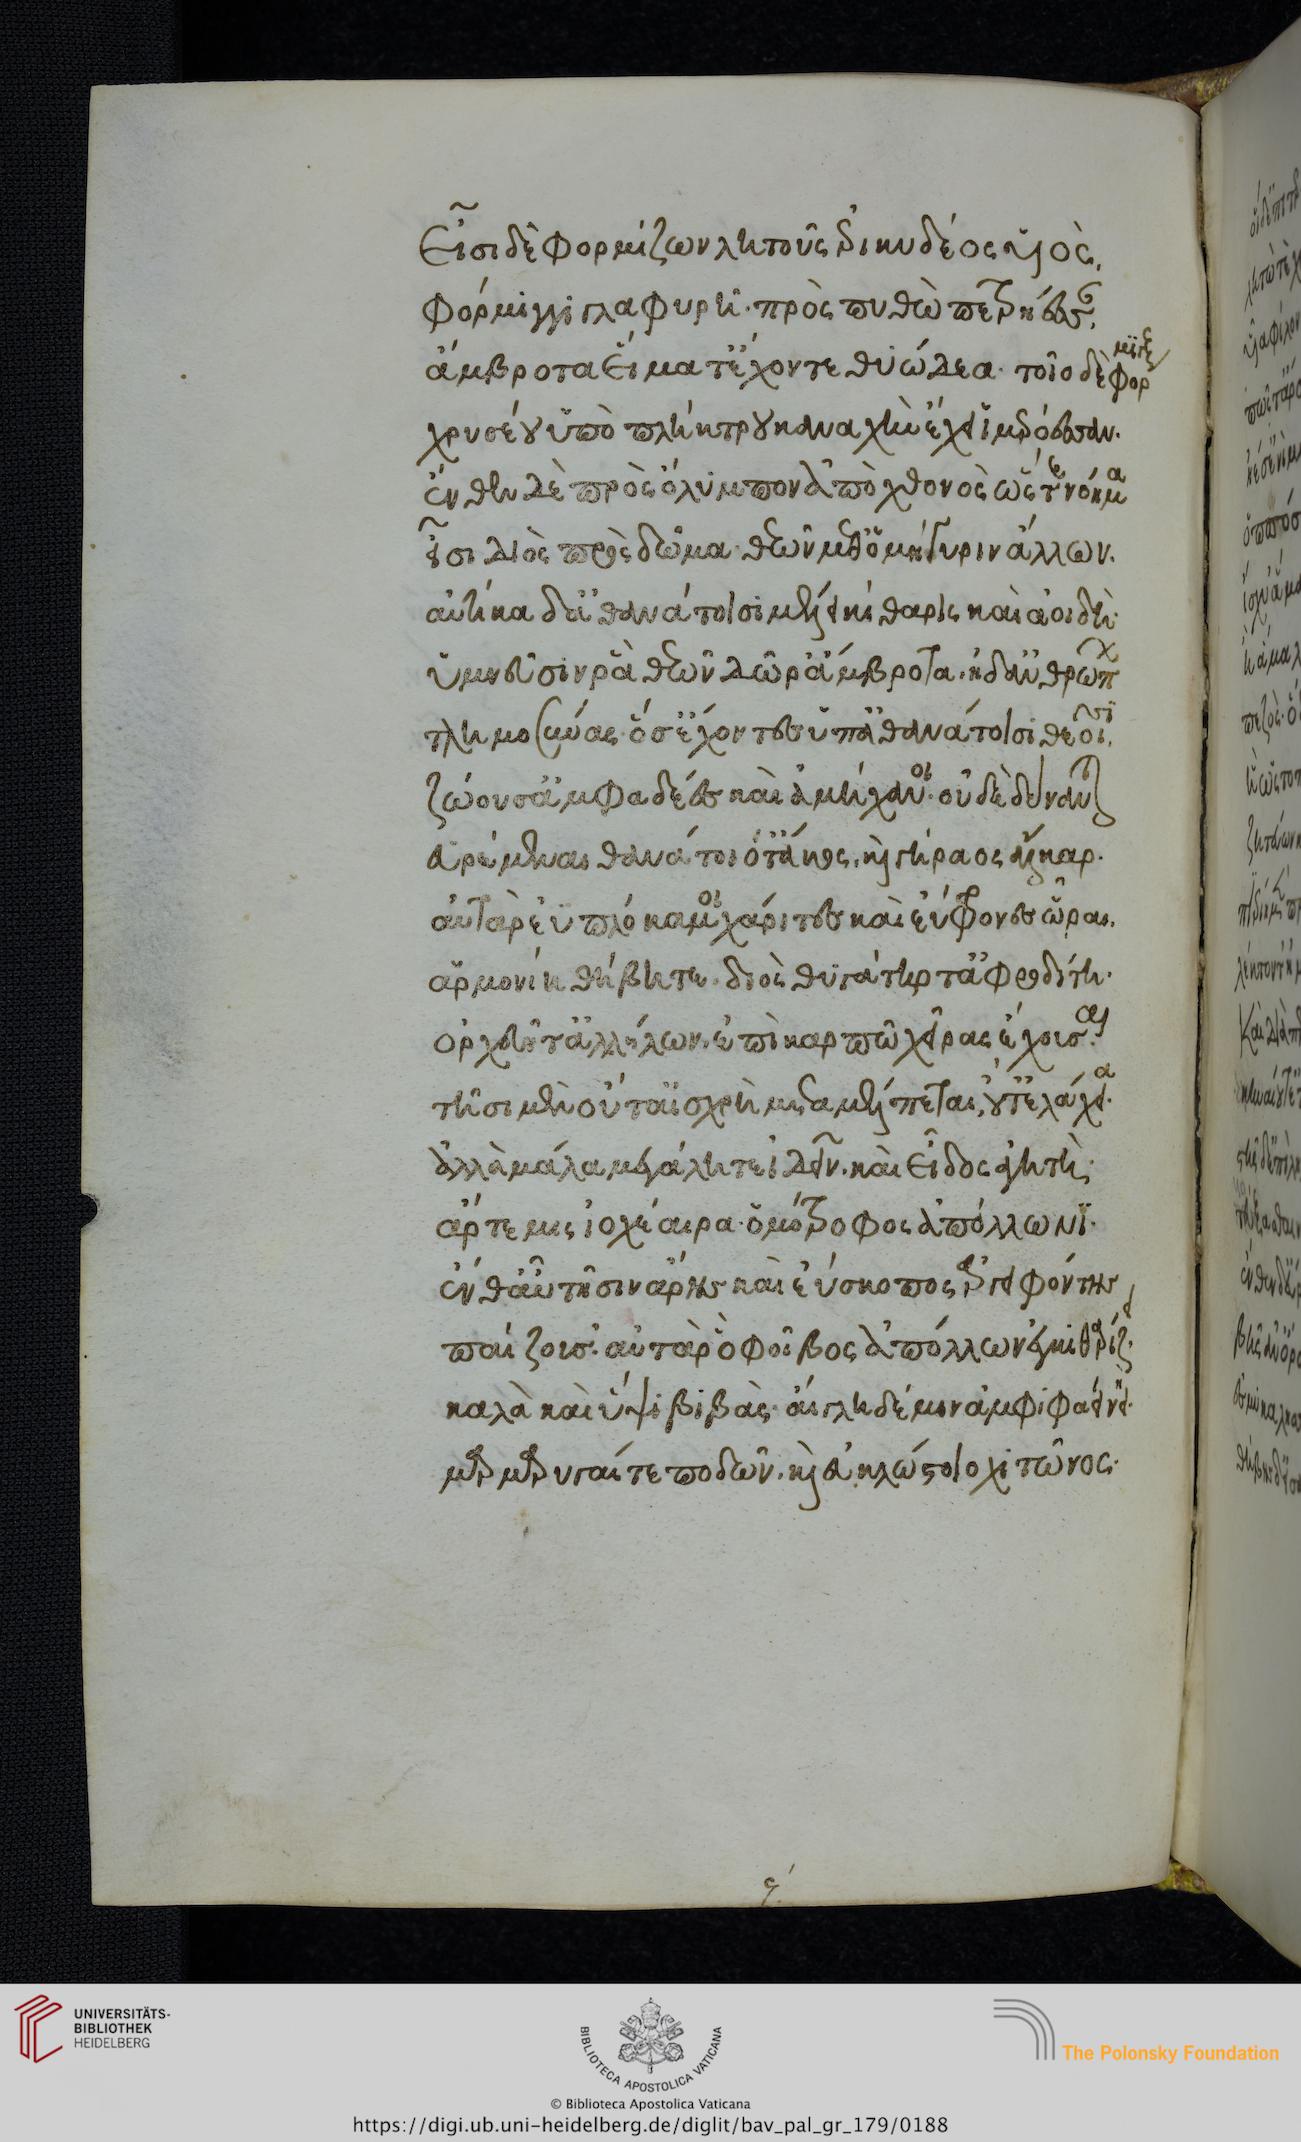 Εἶσι δὲ φορμίζων λητοῦς ἐρικυδέος υἱὸς,
φόρμιγγι γλαφυρῇ· πρὸς πυθὼ πετρήεσσαν,
ἄμβροτα εἵματ' ἔχων τεθυώδεα· τοῖο δὲ φόρμιγξ
χρυσέου ὑπὸ πλήκτρου καναχὴν ἔχει ἱμερόεσσαν.
ἔνθεν δὲ πρὸς ὄλυμπον ἀπὸ χθονὸς ὥστε νόημα
εἶσι διὸς πρὸς δῶμα· θεῶν μεθ' ὁμήγυριν ἄλλων.
αὐτίκα δ' ἀθανάτοισι μέλει κίθαρις καὶ ἀοιδή·
ὑμνεῦσίν ῥα θεῶν δῶρ' ἄμβροτα. ἠδ' ἀνθρώπων
τλημοσύνας· ὅσ' ἔχοντες ὑπ' ἀθανάτοισι θεοῖσι,
ζώουσ' ἀμφαδέες καὶ ἀμήχανοι· οὐδὲ δύνανται
εὑρέμεναι θανάτοιό τ' ἄκος, καὶ γήραος ἄλκαρ.
αὐτὰρ ἐϋπλόκαμοι χάριτες καὶ ἐύφρονες ὧραι.
ἁρμονίη θ' ἥβη τε. διὸς θυγάτηρ τ' ἀφροδίτη·
ὀρχεῦντ' ἀλλήλων. ἐπὶ καρπῷ χεῖρας ἔχουσαι.
τῇσι μὲν οὔτ' αἰσχρὴ μεταμέλπεται, οὔτ' ἐλάχεια·
ἀλλὰ μάλα μεγάλη τε ἰδεῖν. καὶ εἶδος ἀγητὴ·
ἄρτεμις ἰοχέαιρα· ὁμότροφος ἀπόλλωνι·
ἔνθ' αὖ τῇσιν ἄρης καὶ ἐύσκοπος ἀργειφόντης
παίζουσ'· αὐτὰρ ὁ φοῖβος ἀπόλλων ἐγκιθαρίζει·
καλὰ καὶ ὕψι βιβὰς· αἴγλη δέ μιν ἀμφιφαείνει·
μαρμαρυγαί τε ποδῶν. καὶ ἐϋκλώστοιο χιτῶνος·
UNIVERSITÄTS-
BIBLIOTHEK
HEIDELBERG
BIBLIOTECA APOSTOLICA VATICANA
The Polonsky Foundation
© Biblioteca Apostolica Vaticana
https://digi.ub.uni-heidelberg.de/diglit/bav_pal_gr_179/0188